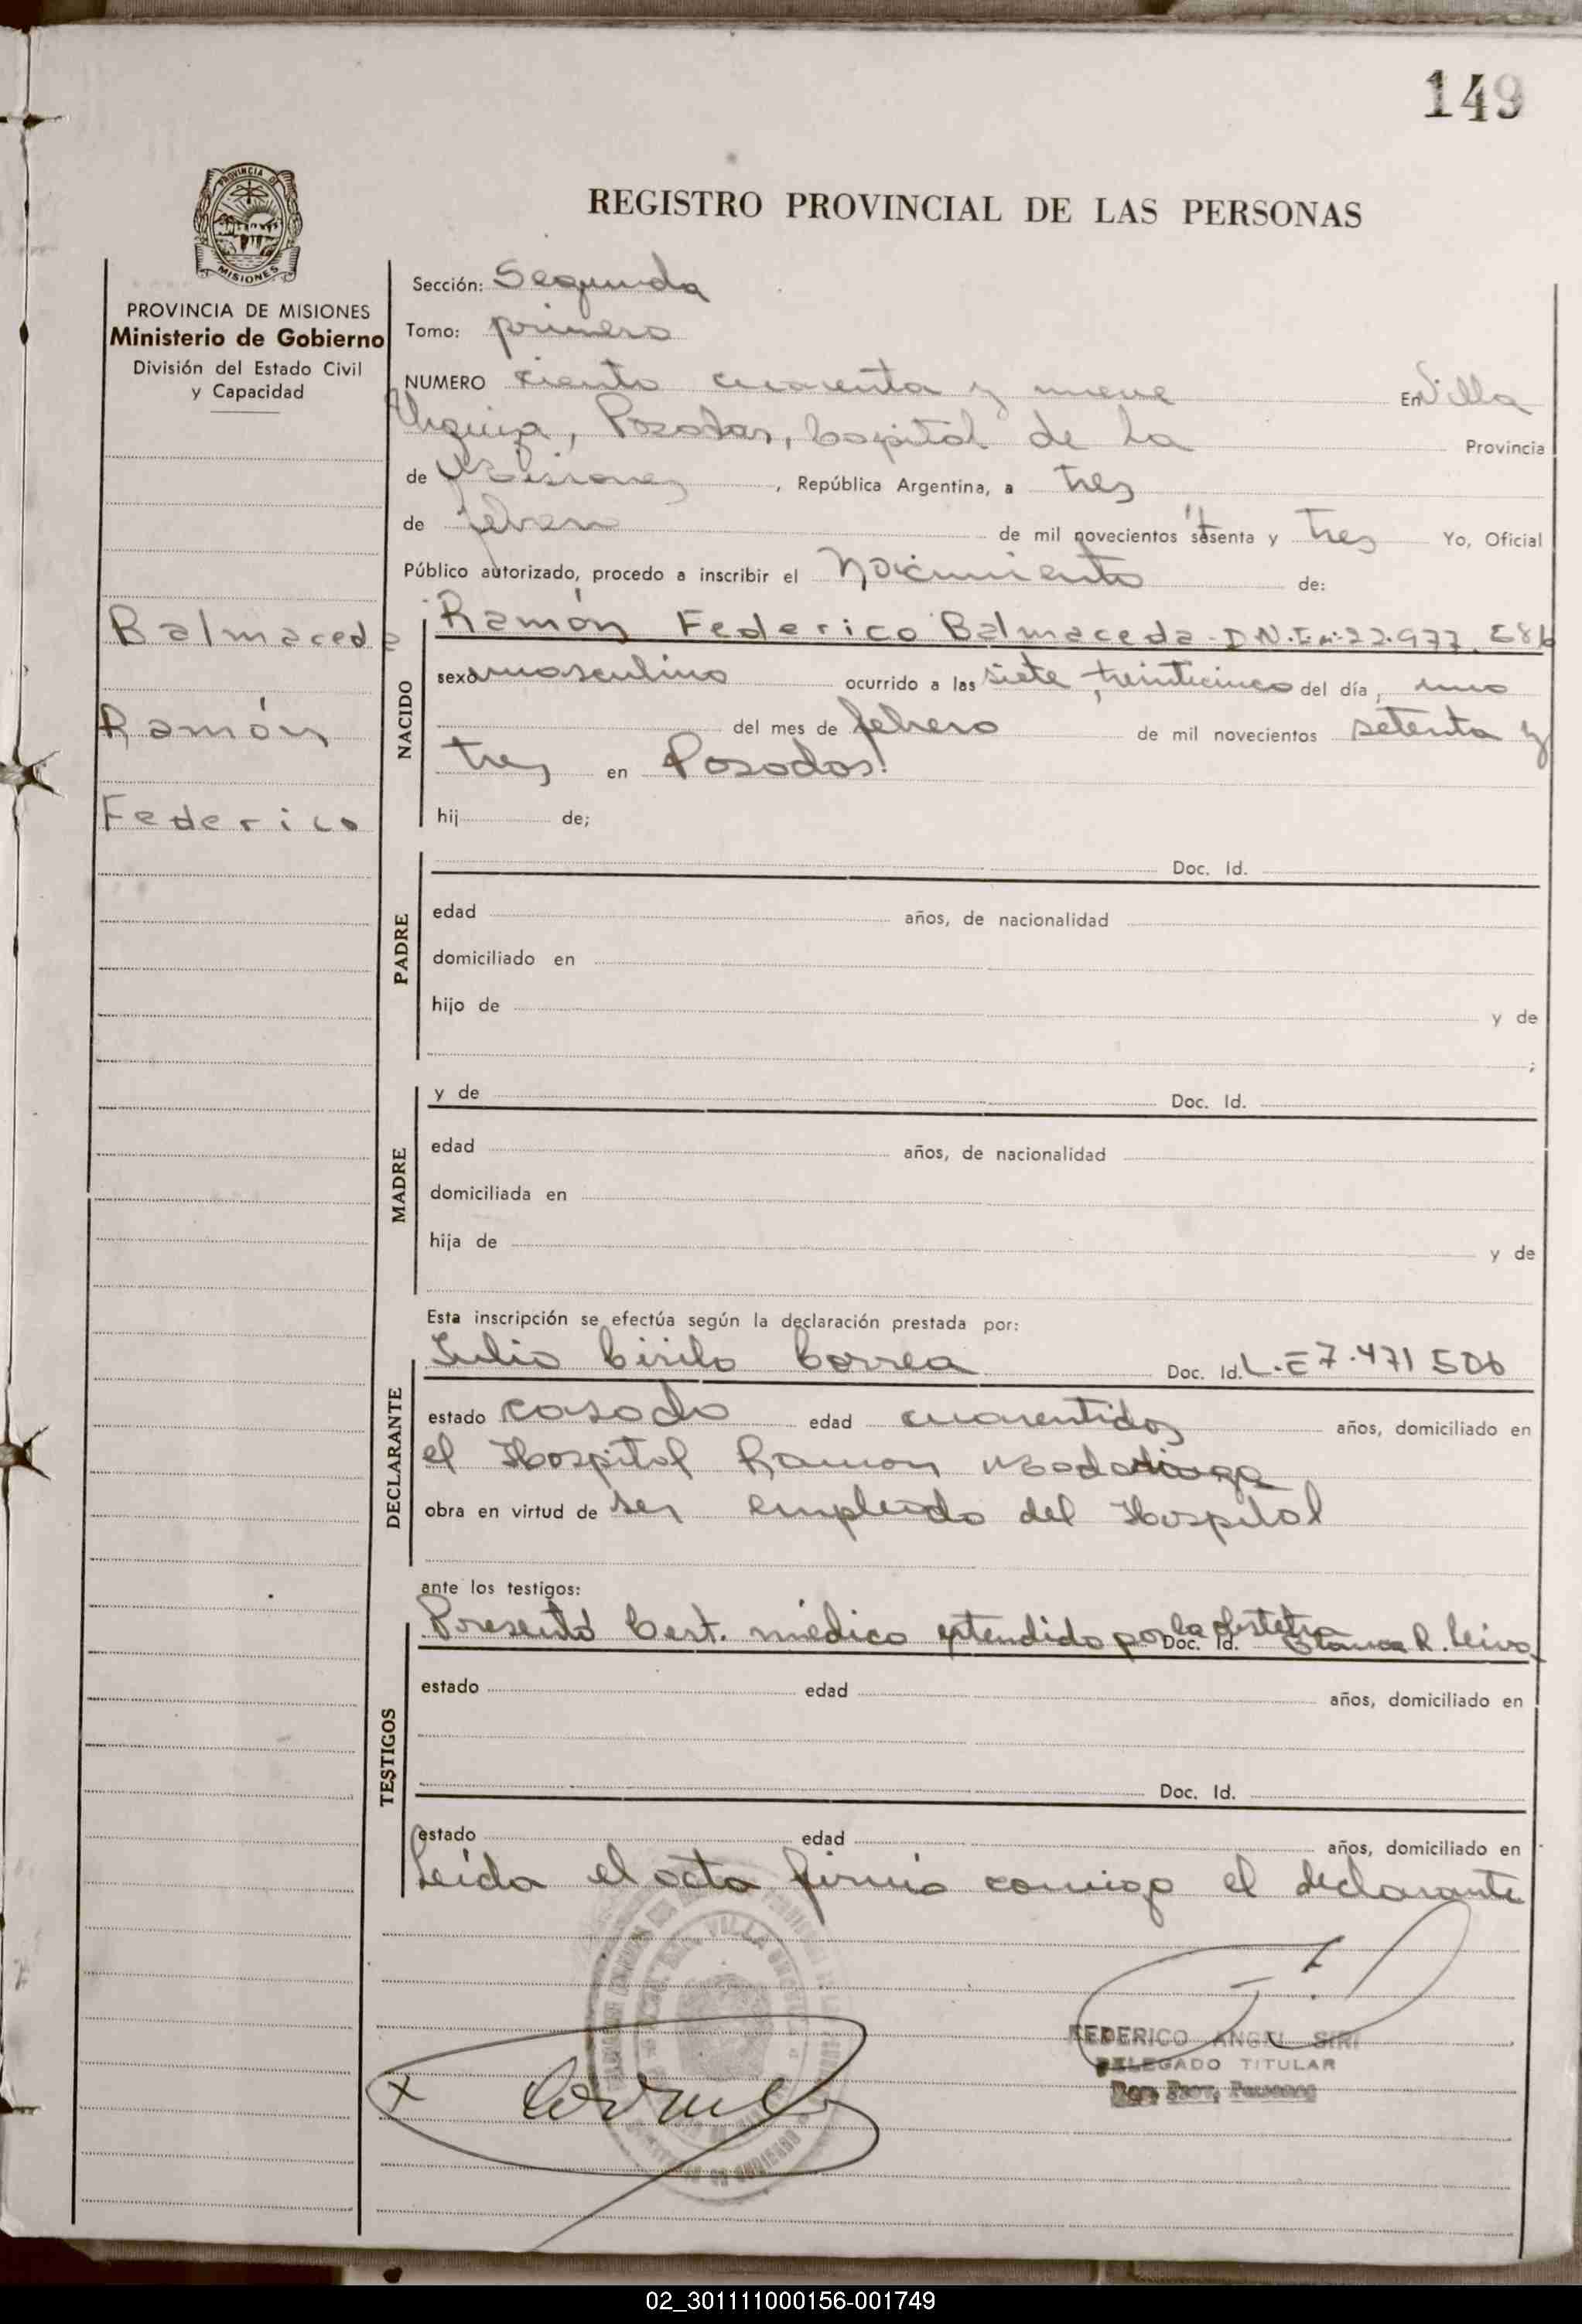 149
PROVINCIA DE
MISIONES
REGISTRO PROVINCIAL DE LAS PERSONAS
PROVINCIA DE MISIONES
Ministerio de Gobierno
División del Estado Civil
y Capacidad
Sección: Segunda
Tomo: primero
NUMERO ciento cuarenta y nueve En Villa
Urquiza, Posadas, Capital de la Provincia
de Misiones, República Argentina, a tres
de febrero de mil novecientos setenta y tres Yo, Oficial
Público autorizado, procedo a inscribir el Nacimiento de:
Balmaceda
Ramón
Federico
NACIDO
Ramón Federico Balmaceda - D.N.I. Nº: 22.977.
sexo masculino ocurrido a las siete, treinticinco del día, uno
del mes de febrero de mil novecientos setenta y
tres en Posadas.
hij de;
PADRE
Doc. Id.
edad años, de nacionalidad
domiciliado en
hijo de y de
;
MADRE
y de Doc. Id.
edad años, de nacionalidad
domiciliada en
hija de y de
Esta inscripción se efectúa según la declaración prestada por:
DECLARANTE
Julio Cirilo Correa Doc. Id. L.E 7.471 506
estado casado edad cuarentidos años, domiciliado en
el Hospital Ramon Madariaga
obra en virtud de ser empleado del Hospital
ante los testigos:
TESTIGOS
Presentó Cert. médico extendido por la obstetra Doc. Id. Blanca R. Leiva
estado edad años, domiciliado en
Doc. Id.
estado edad años, domiciliado en
Leida el acta firmó conmigo el declarante
VILLA URQUIZA
Correa
FEDERICO ANGEL SIRI
DELEGADO TITULAR
Reg. Prov. Personas
02_301111000156-001749